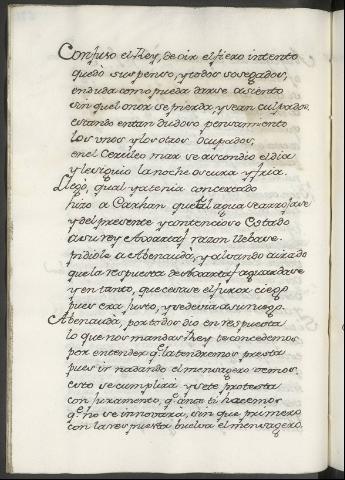 Confuso el Rey, de oir el fiero intento
quedò suspenso, y todos sosegados,
en duda como pueda darse asiento
sin quel onor se pierda, y sean culpados.
estando en tan dudoso pensamiento
los unos y los otros ocupados,
en el Ceruleo mar se ascondio el dia
y le siguio la noche oscura y fria.
Llegò, qual ya tenia concertado
hizo a Carxhan que al agua se arrojase
y del presente y contencioso Estado
a su rey razon llebase.
pidiole a Abenauda, y alvando airado
que la respuesta de aguardase
y en tanto, que cesase el furor ciego
pues era justo, y se devia a su ruego.
Abenauda, por todos dio en respuesta
lo que nos mandas ò Rey te concedemos
por entender q.e la tendremos presta
pues ir nadando el mensagero vemos.
esto se cumplirà y sete protesta
con juramento, q.e aqui ti hacemos
q.e no se innovarà, sin que primero
con la respuesta buelva el mensagero.